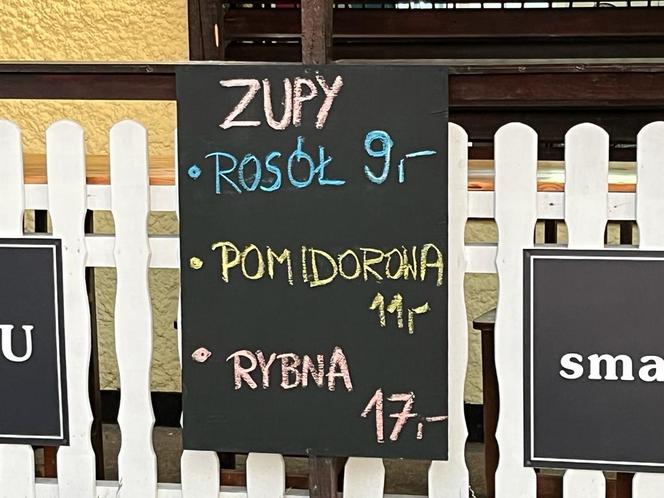 ZUPY
• ROSÓŁ 9,-
• POMIDOROWA
11,-
• RYBNA
17,-
U
sma